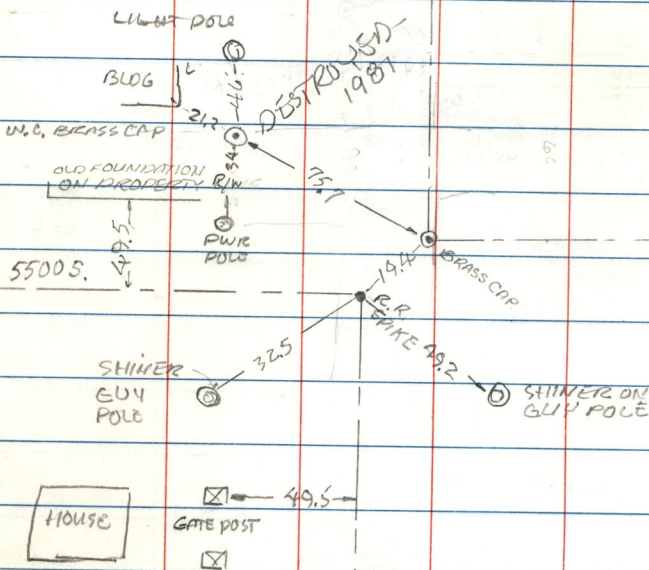 LIGHT POLE
BLDG
46
DESTROYED
1987
21.2
W.C. BRASS CAP
34
OLD FOUNDATION
ON PROPERTY
R/W
75.7
PWR
POLE
49.5
5500 S.
19.4
BRASS CAP
R.R.
SPIKE
32.5
49.2
SHINER
GUY
POLE
SHINER ON
GUY POLE
49.5
HOUSE
GATE POST